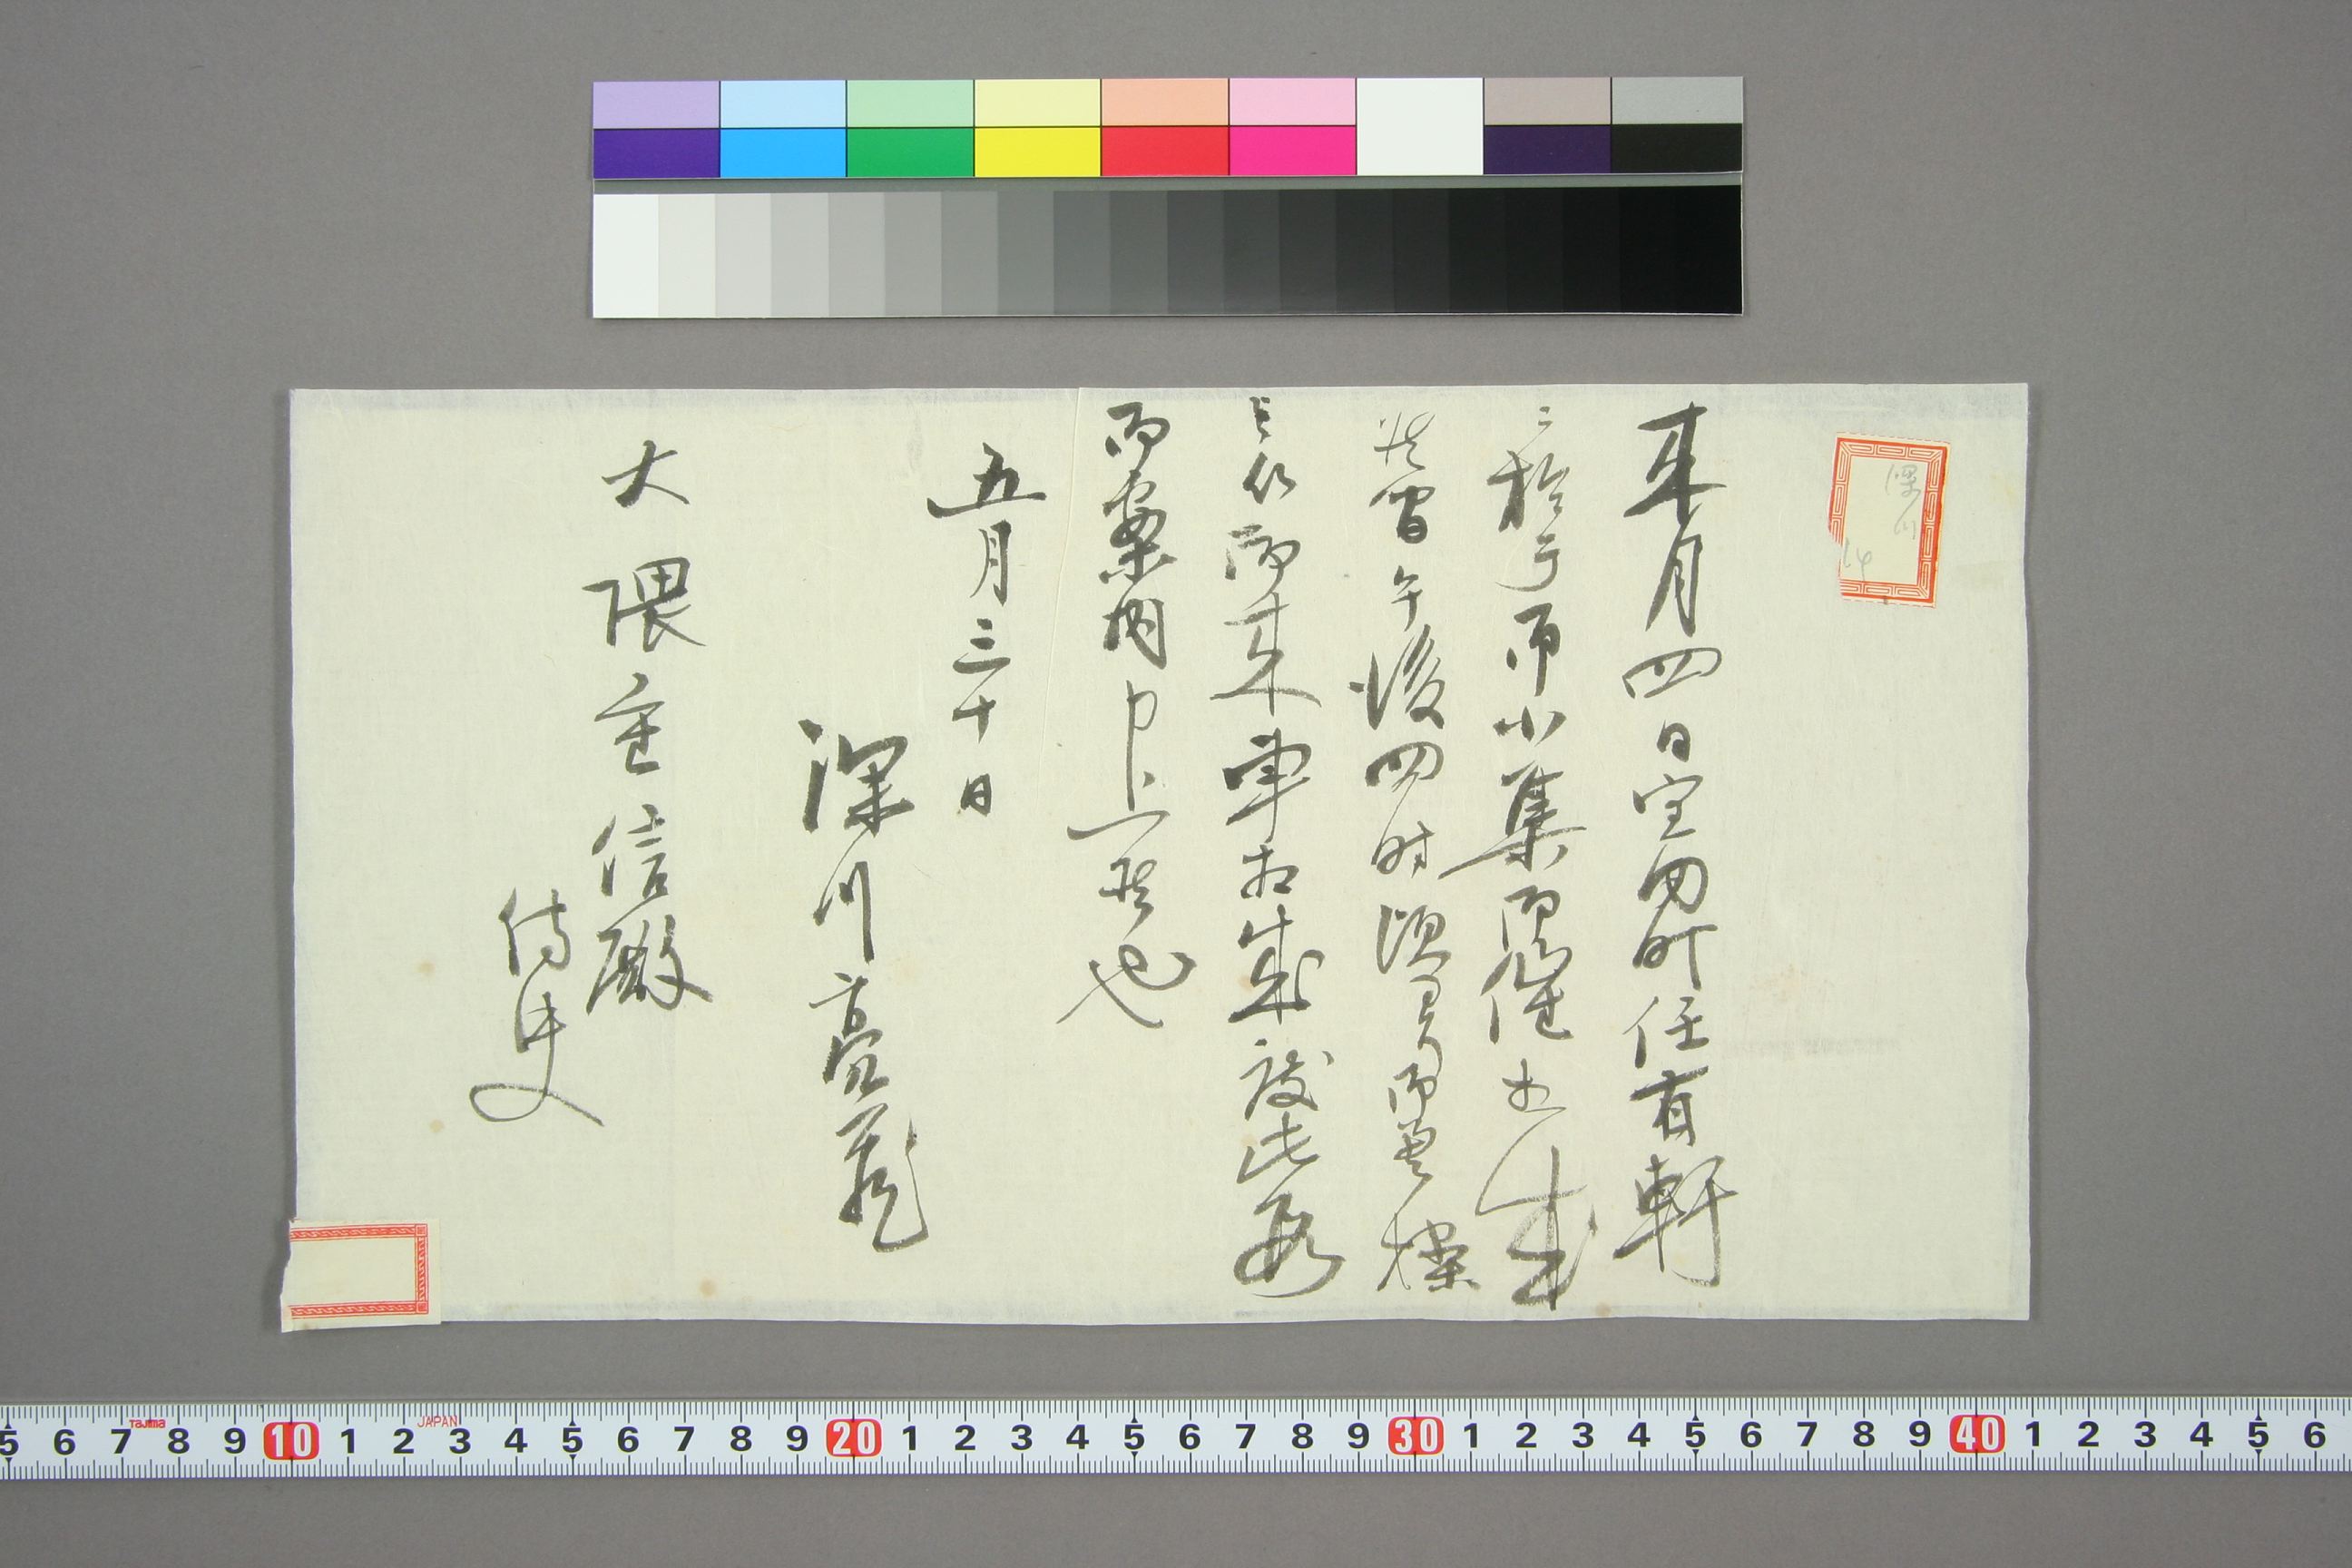 来月四日町任有軒
ニ於テ小集御催相成
候間午後四時頃ヨリ御
御来車相成度此段
御案内申上候也
五月三十日
深川亮蔵
大隈重信殿
侍史
深川
14
5 6 7 8 9 10 1 2 3 4 5 6 7 8 9 20 1 2 3 4 5 6 7 8 9 30 1 2 3 4 5 6 7 8 9 40 1 2 3 4 5 6
Tajima
JAPAN